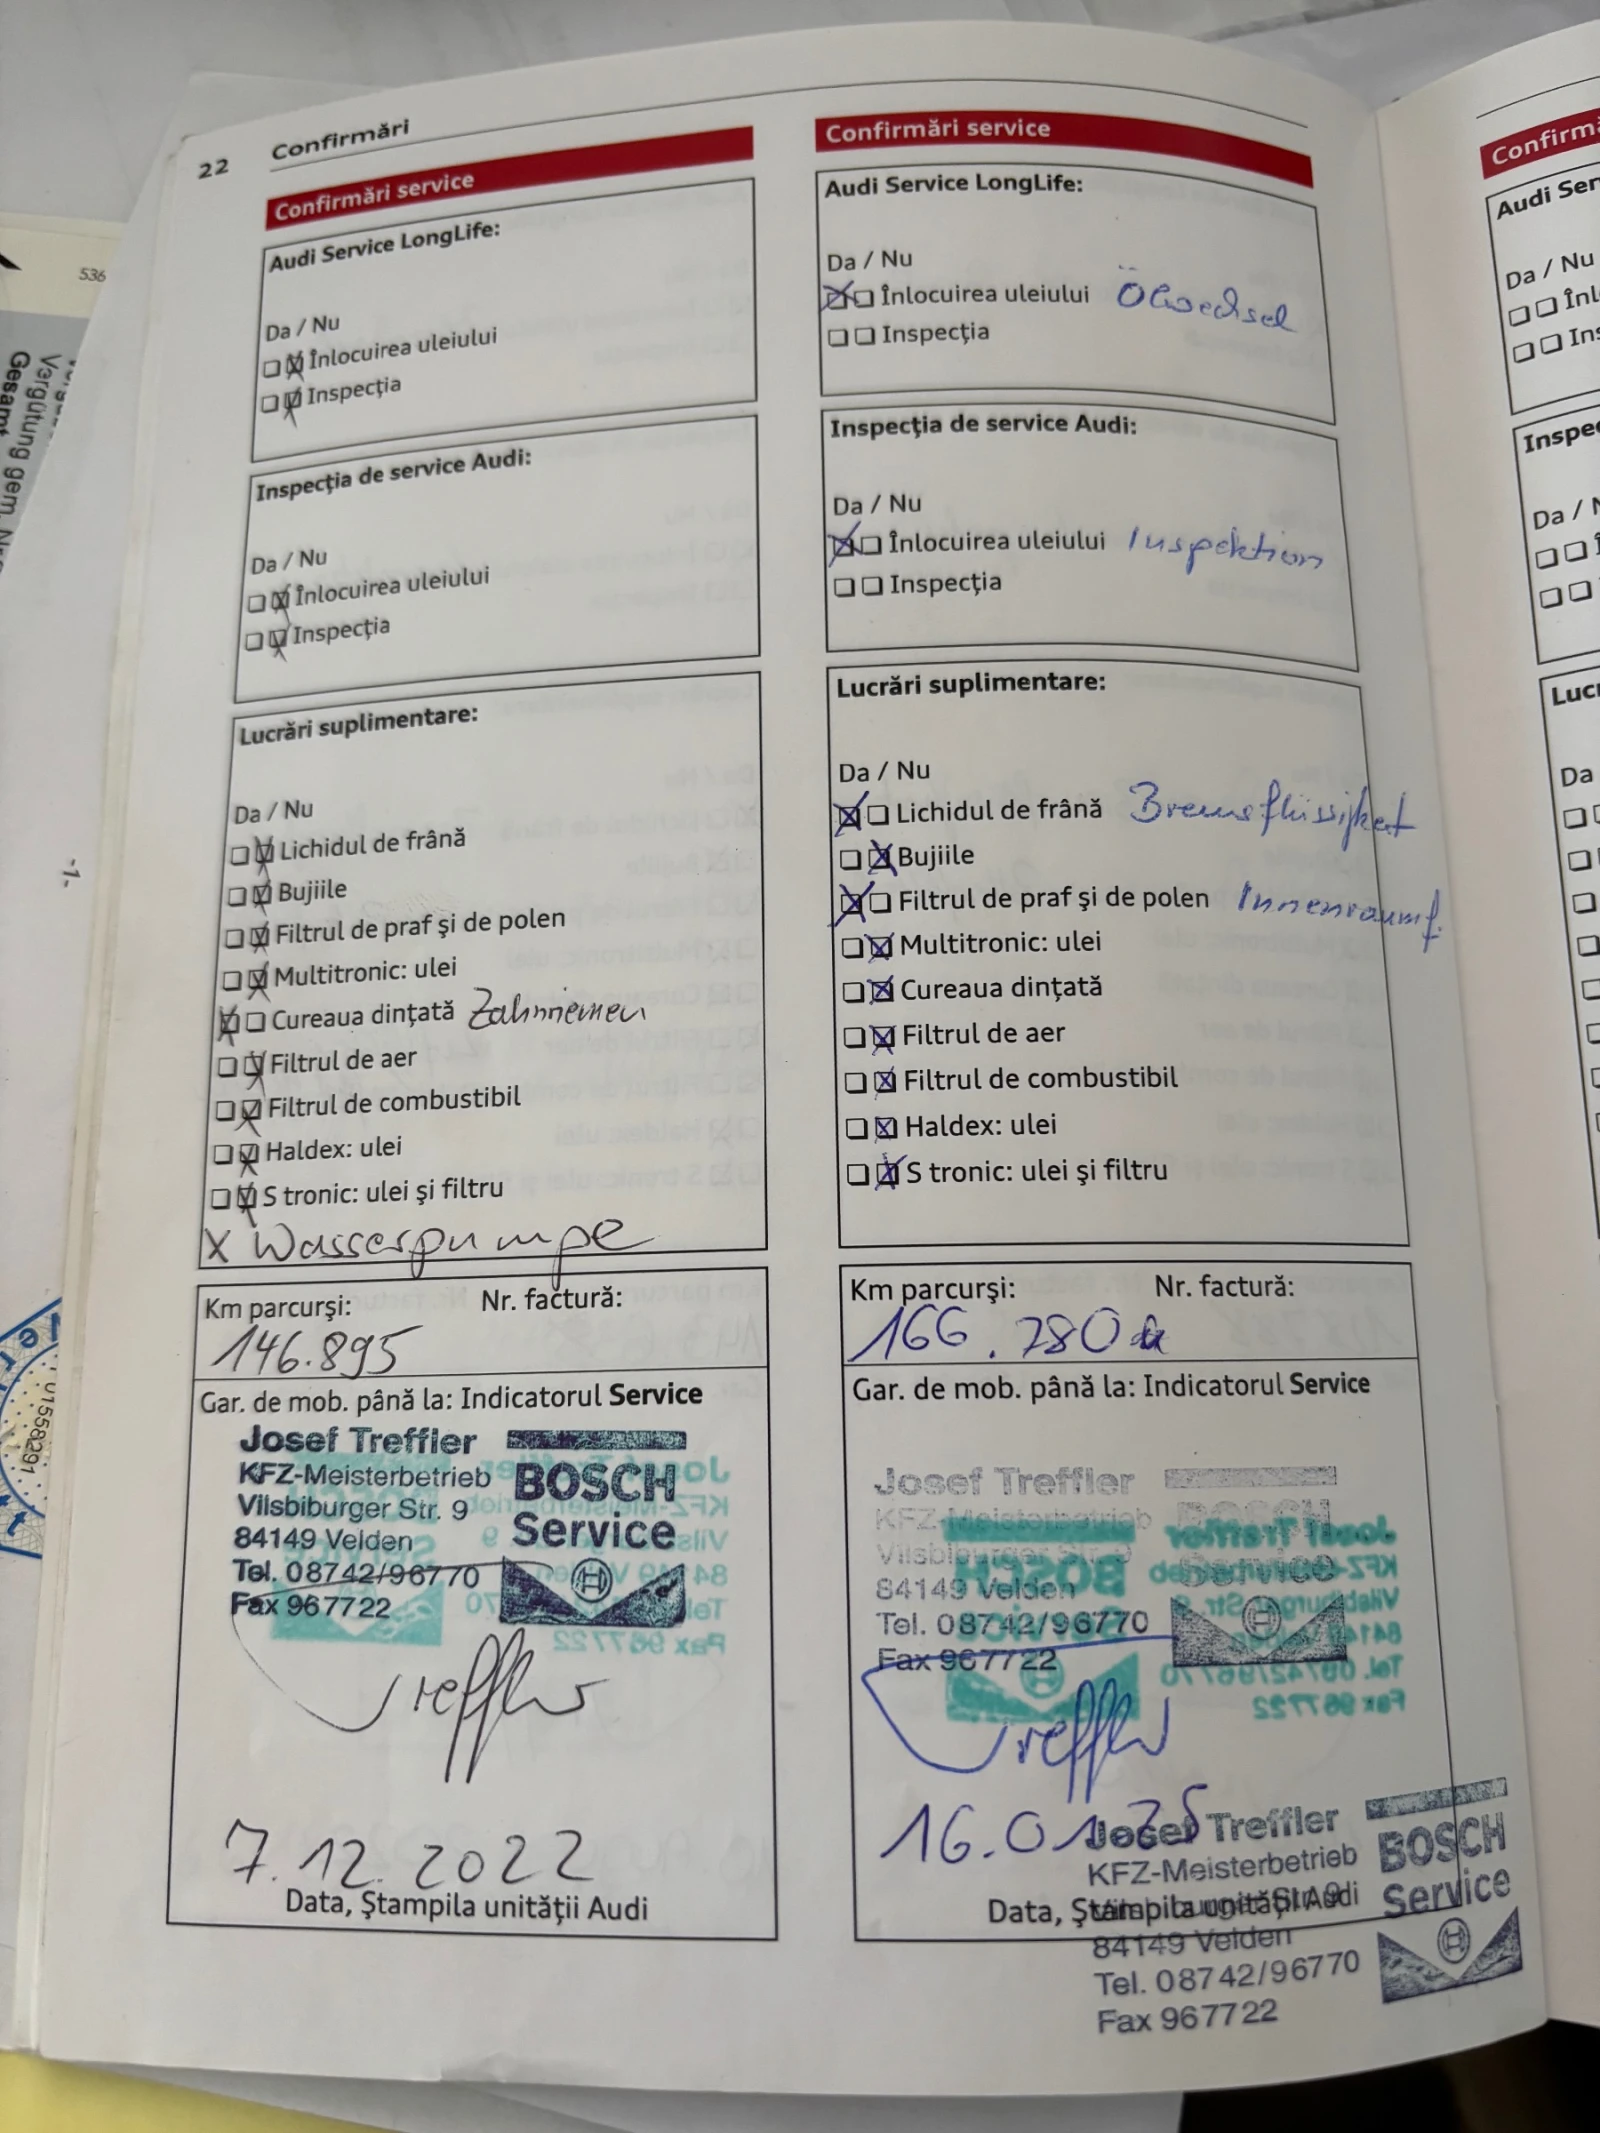 22 Confirmări
Confirmări service
Audi Service LongLife:
Da / Nu
Înlocuirea uleiului
Inspecția
Inspecția de service Audi:
Da / Nu
Înlocuirea uleiului
Inspecția
Lucrări suplimentare:
Da / Nu
Lichidul de frână
Bujiile
Filtrul de praf și de polen
Multitronic: ulei
Cureaua dințată Zahnriemen
Filtrul de aer
Filtrul de combustibil
Haldex: ulei
S tronic: ulei și filtru
X Wasserpumpe
Km parcurși: Nr. factură:
146.895
Gar. de mob. până la: Indicatorul Service
Josef Treffler
KFZ-Meisterbetrieb
Vilsbiburger Str. 9
84149 Velden
Tel. 08742/96770
Fax 967722
BOSCH
Service
Treffler
7.12.2022
Data, Ștampila unității Audi
Confirmări service
Audi Service LongLife:
Da / Nu
Înlocuirea uleiului Ölwechsel
Inspecția
Inspecția de service Audi:
Da / Nu
Înlocuirea uleiului Inspektion
Inspecția
Lucrări suplimentare:
Da / Nu
Lichidul de frână Bremsflüssigkeit
Bujiile
Filtrul de praf și de polen Innenraumf.
Multitronic: ulei
Cureaua dințată
Filtrul de aer
Filtrul de combustibil
Haldex: ulei
S tronic: ulei și filtru
Km parcurși: Nr. factură:
166.780
Gar. de mob. până la: Indicatorul Service
Josef Treffler
KFZ-Meisterbetrieb
Vilsbiburger Str. 9
84149 Velden
Tel. 08742/96770
Fax 967722
BOSCH
Service
Treffler
16.01.25
Data, Ștampila unității Audi
Josef Treffler
KFZ-Meisterbetrieb
84149 Velden
Tel. 08742/96770
Fax 967722
BOSCH
Service
Audi
Da / Nu
Da
536
Vergütung gem.
Gesamt
-1-
U1558291